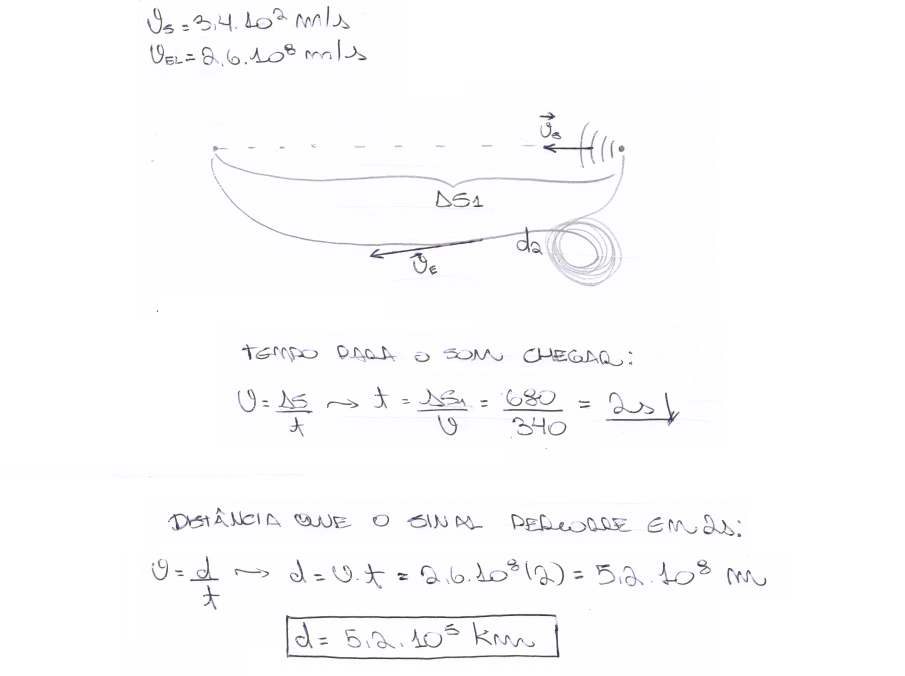 ϑs = 3,4.10² m/s
ϑEL = 2,6.10⁸ m/s
ϑ⃗s
ΔS1
d2
ϑ⃗E
TEMPO PARA O SOM CHEGAR:
ϑ = ΔS/t ⇝ t = ΔS1/ϑ = 680/340 = 2s
DISTÂNCIA QUE O SINAL PERCORRE EM 2s:
ϑ = d/t ⇝ d = ϑ.t = 2,6.10⁸(2) = 5,2.10⁸ m
d = 5,2.10⁵ km